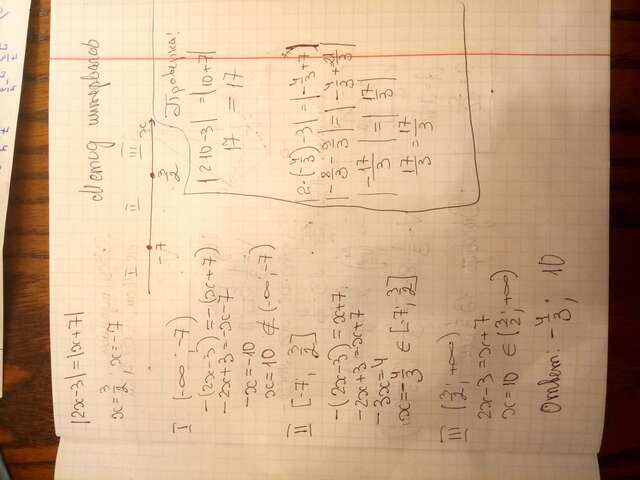 |2x-3|=|x+7|
x=3/2, x=-7
Метод интервалов
I II III x
-7 3/2
I (-∞; -7)
-(2x-3)=-(x+7)
-2x+3=-x-7
-x=-10
x=10 ∉ (-∞;-7)
II [-7, 3/2]
-(2x-3)=x+7
-2x+3=x+7
-3x=4
x=-4/3 ∈ [-7, 3/2]
III (3/2; +∞)
2x-3=x+7
x=10 ∈ (3/2; +∞)
Ответ: -4/3; 10
Проверка:
|2·10-3|=|10+7|
17 = 17
|2·(-4/3)-3|=|-4/3+7|
|-8/3-9/3|=|-4/3+21/3|
|-17/3|=|17/3|
17/3=17/3